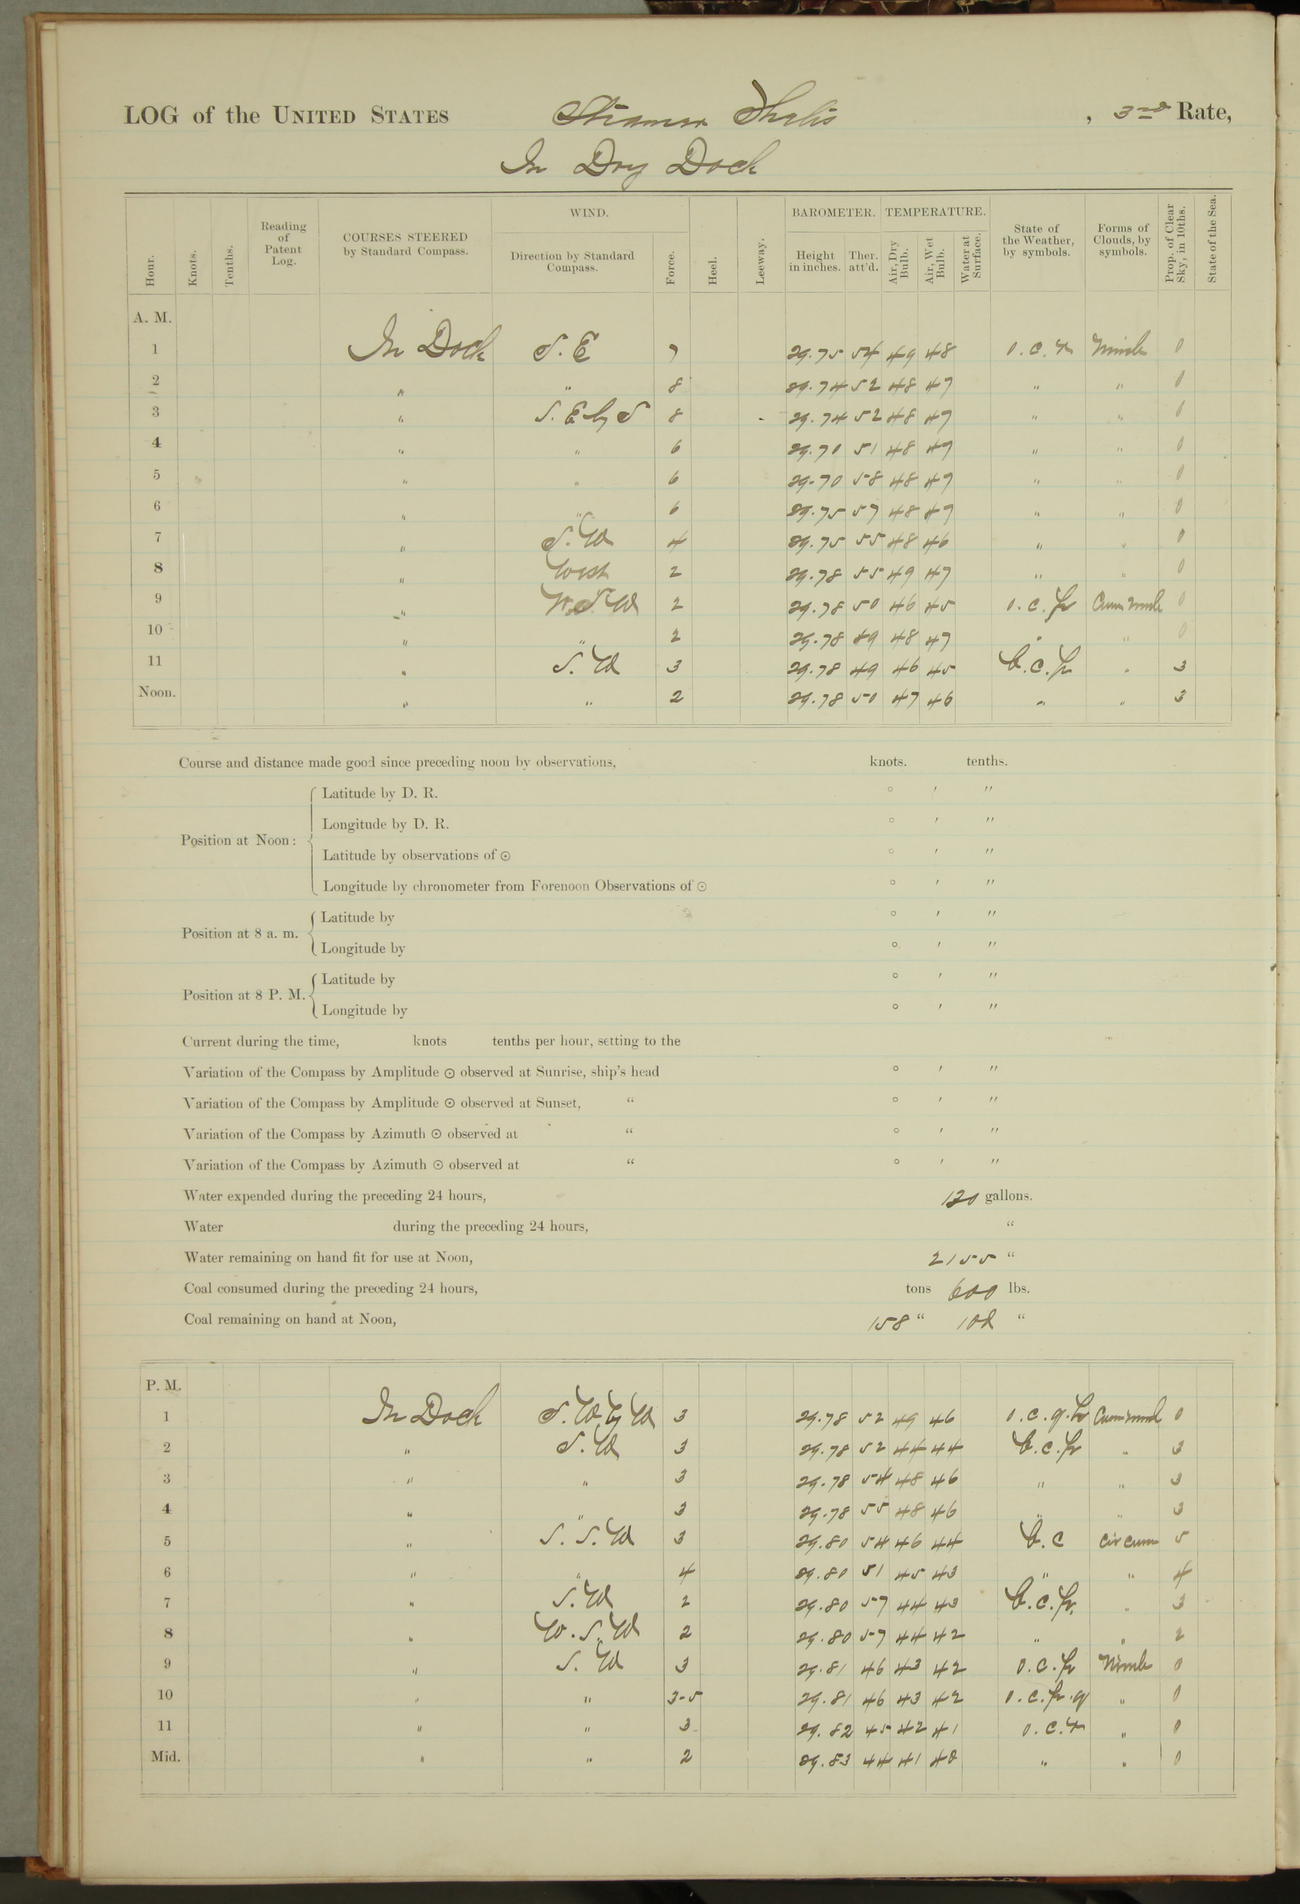 LOG of the UNITED STATES Steamer Thetis , 3rd Rate,
In Dry Dock
Hour. Knots. Tenths. Reading of Patent Log. COURSES STEERED by Standard Compass. WIND. Direction by Standard Compass. Force. Heel. Leeway. BAROMETER. Height in inches. Ther. att'd. TEMPERATURE. Air, Dry Bulb. Air, Wet Bulb. Water at Surface. State of the Weather, by symbols. Forms of Clouds, by symbols. Prop. of Clear Sky, in 10ths. State of the Sea.
A. M.
1 In Dock S. E 7 29.75 54 49 48 o. c. r Nimb 0
2 " " 8 29.74 52 48 47 " " 0
3 " S. E by S 8 29.74 52 48 47 " " 0
4 " " 6 29.70 51 48 47 " " 0
5 " " 6 29.70 58 48 47 " " 0
6 " " 6 29.75 57 48 47 " " 0
7 " S. W 4 29.75 55 48 46 " " 0
8 " West 2 29.78 55 49 47 " " 0
9 " W. S. W 2 29.78 50 46 45 o. c. p Cum Nimb 0
10 " " 2 29.78 49 48 47 " " 0
11 " S. W 3 29.78 49 46 45 b. c. p " 3
Noon. " " 2 29.78 50 47 46 " " 3
Course and distance made good since preceding noon by observations, knots. tenths.
Position at Noon:
Latitude by D. R. ° ′ ″
Longitude by D. R. ° ′ ″
Latitude by observations of ☉ ° ′ ″
Longitude by chronometer from Forenoon Observations of ☉ ° ′ ″
Position at 8 a. m.
Latitude by ° ′ ″
Longitude by ° ′ ″
Position at 8 P. M.
Latitude by ° ′ ″
Longitude by ° ′ ″
Current during the time, knots tenths per hour, setting to the
Variation of the Compass by Amplitude ☉ observed at Sunrise, ship's head ° ′ ″
Variation of the Compass by Amplitude ☉ observed at Sunset, " ° ′ ″
Variation of the Compass by Azimuth ☉ observed at " ° ′ ″
Variation of the Compass by Azimuth ☉ observed at " ° ′ ″
Water expended during the preceding 24 hours, 120 gallons.
Water during the preceding 24 hours, "
Water remaining on hand fit for use at Noon, 2155 "
Coal consumed during the preceding 24 hours, tons 600 lbs.
Coal remaining on hand at Noon, 158 " 102 "
P. M.
1 In Dock S. W by W 3 29.78 52 49 46 o. c. q. p Cum Nimb 0
2 " S. W 3 29.78 52 44 44 b. c. p " 3
3 " " 3 29.78 54 48 46 " " 3
4 " " 3 29.78 55 48 46 " " 3
5 " S. S. W 3 29.80 54 46 44 b. c Cir Cum 5
6 " " 4 29.80 51 45 43 " " 4
7 " S. W 2 29.80 57 44 43 b. c. p. " 3
8 " W. S. W 2 29.80 57 44 42 " " 2
9 " S. W 3 29.81 46 43 42 o. c. p Nimb 0
10 " " 3-5 29.81 46 43 42 o. c. p. q " 0
11 " " 3 29.82 45 42 41 o. c. r " 0
Mid. " " 2 29.83 44 41 40 " " 0